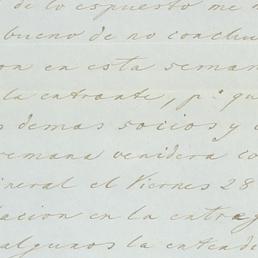 de lo espuesto me
bueno de no conclu
on en esta seman
la entrante, p.ª qu
s demas socios y
semana venidera co
neral el Viernes 28
acion en la entreg
algunos la